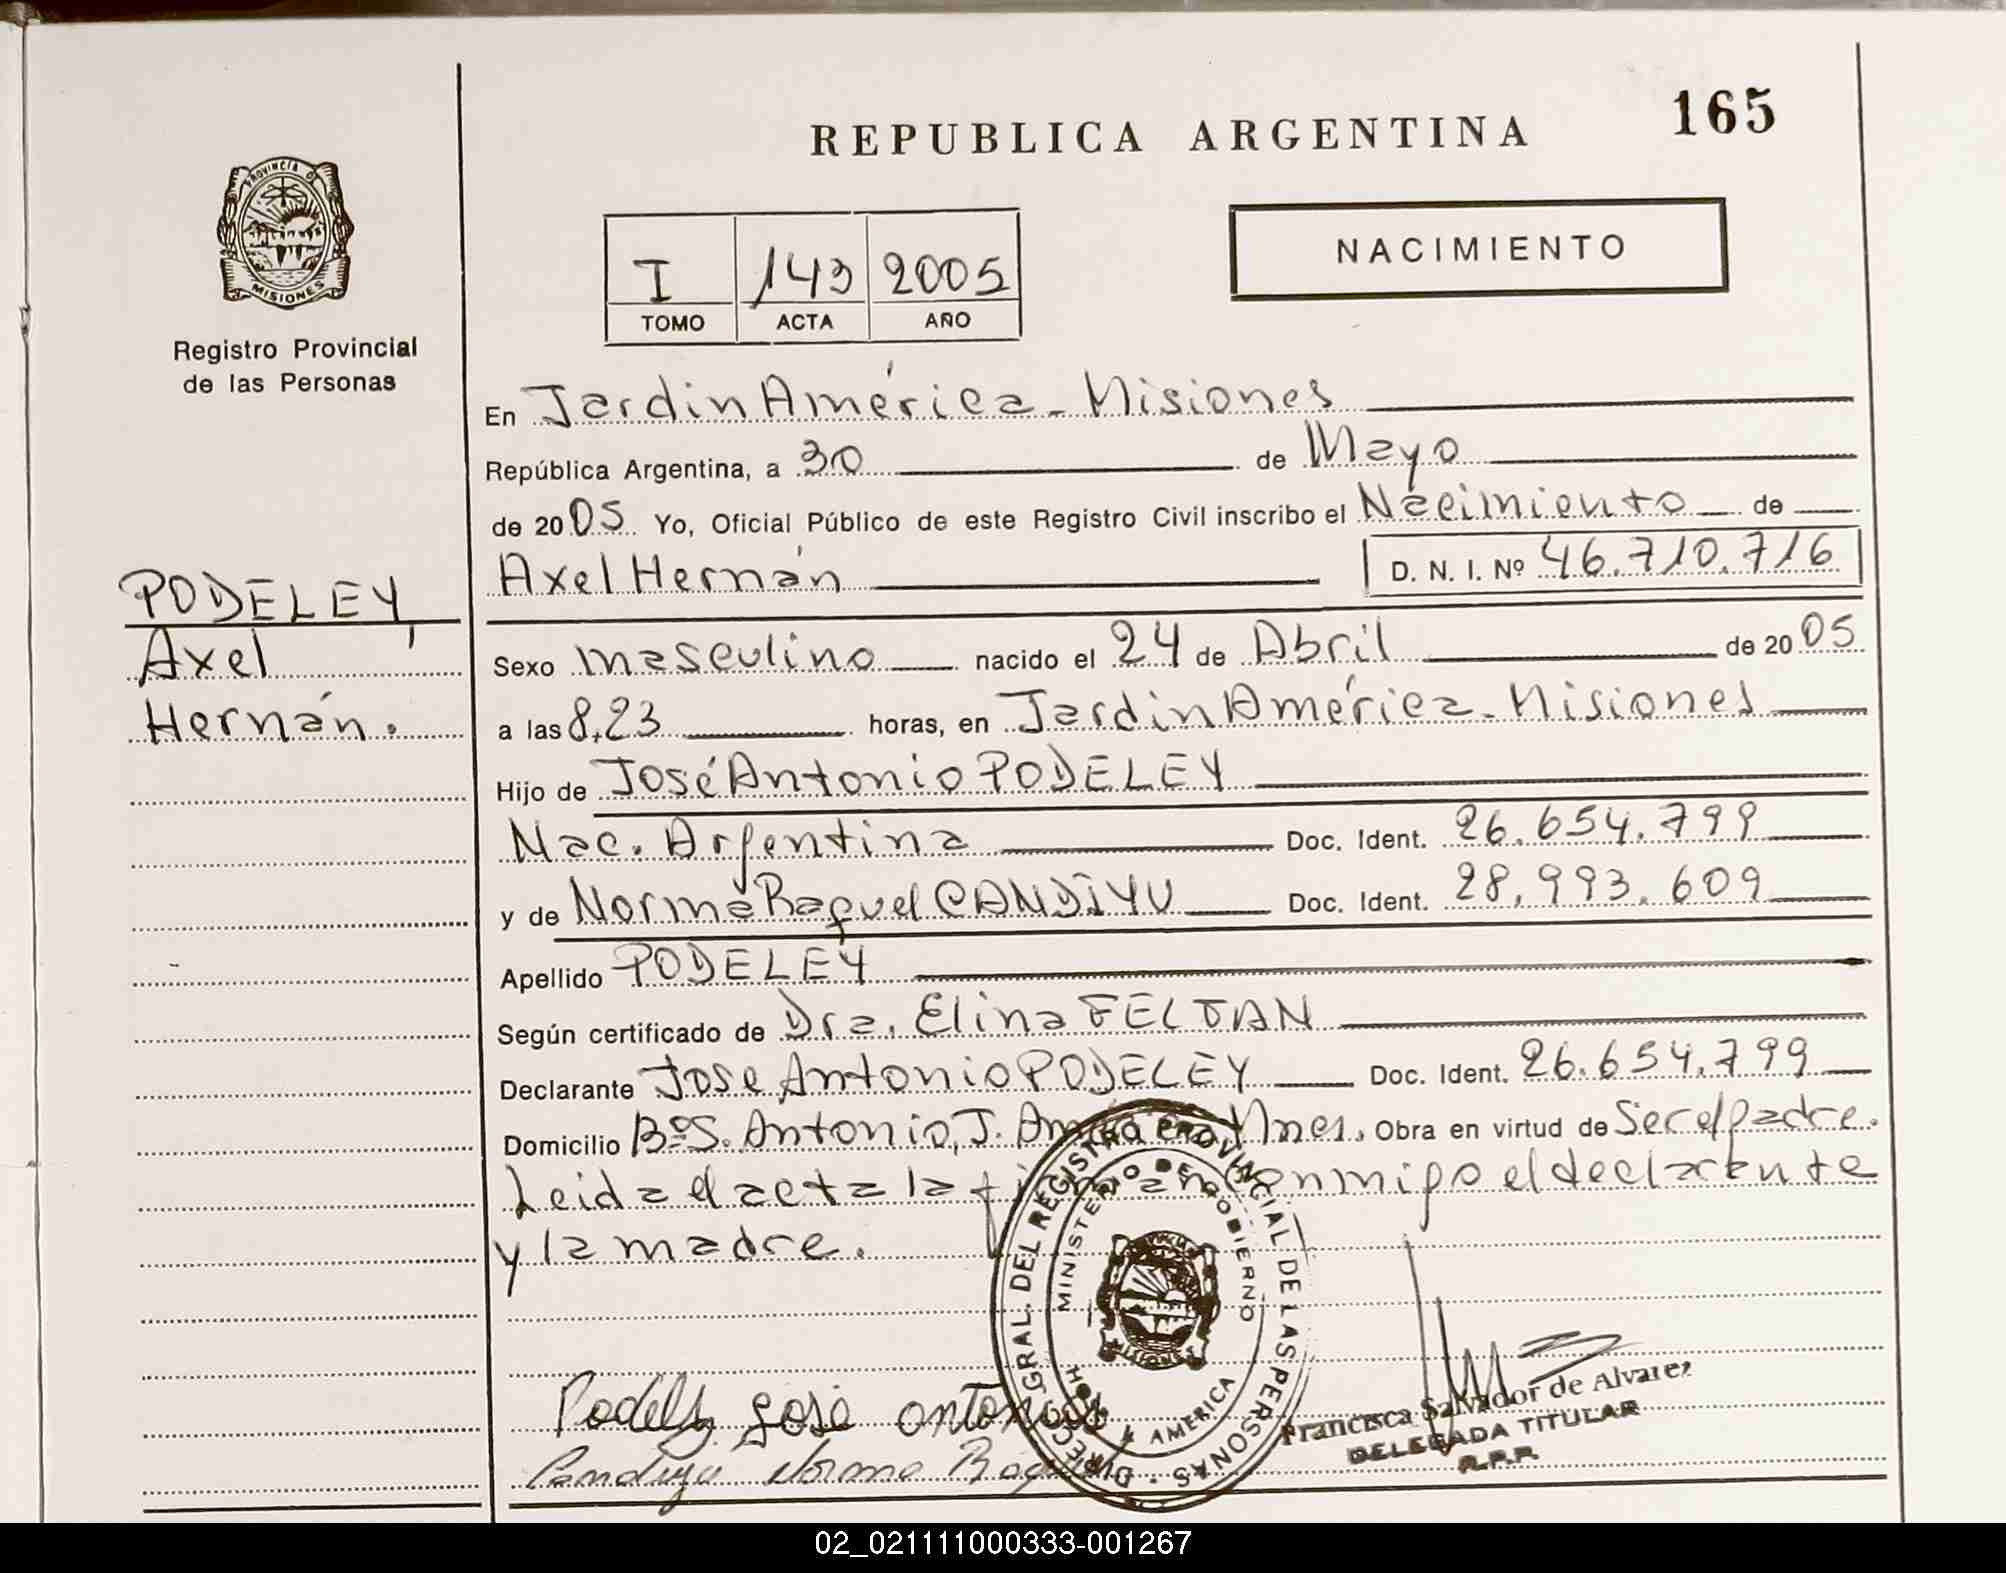 165
REPUBLICA ARGENTINA
PROVINCIA D
MISIONES
Registro Provincial
de las Personas
NACIMIENTO
I 143 2005
TOMO ACTA AÑO
En Jardin América - Misiones
República Argentina, a 30 de Mayo
de 2005 Yo, Oficial Público de este Registro Civil inscribo el Nacimiento de
Axel Hernán D. N. I. Nº 46.710.716
PODELEY,
Axel
Hernán.
Sexo masculino nacido el 24 de Abril de 2005
a las 8,23 horas, en Jardin América - Misiones
Hijo de José Antonio PODELEY
Nac. Argentina Doc. Ident. 26.654.799
y de Norma Raquel CANDIYU Doc. Ident. 28.993.609
Apellido PODELEY
Según certificado de Dra. Elina FELTAN
Declarante Jose Antonio PODELEY Doc. Ident. 26.654.799
Domicilio Bº S. Antonio, J. América Mnes. Obra en virtud de Ser el padre.
Leida el acta la firman conmigo el declarante
y la madre.
DIRECC. GRAL. DEL REGISTRO PROVINCIAL DE LAS PERSONAS
MINISTERIO DE GOBIERNO
MISIONES
AMERICA
Podely José antonio
Candiyu Norma
Francisca Salvador de Alvarez
DELEGADA TITULAR
R.P.P.
02_021111000333-001267